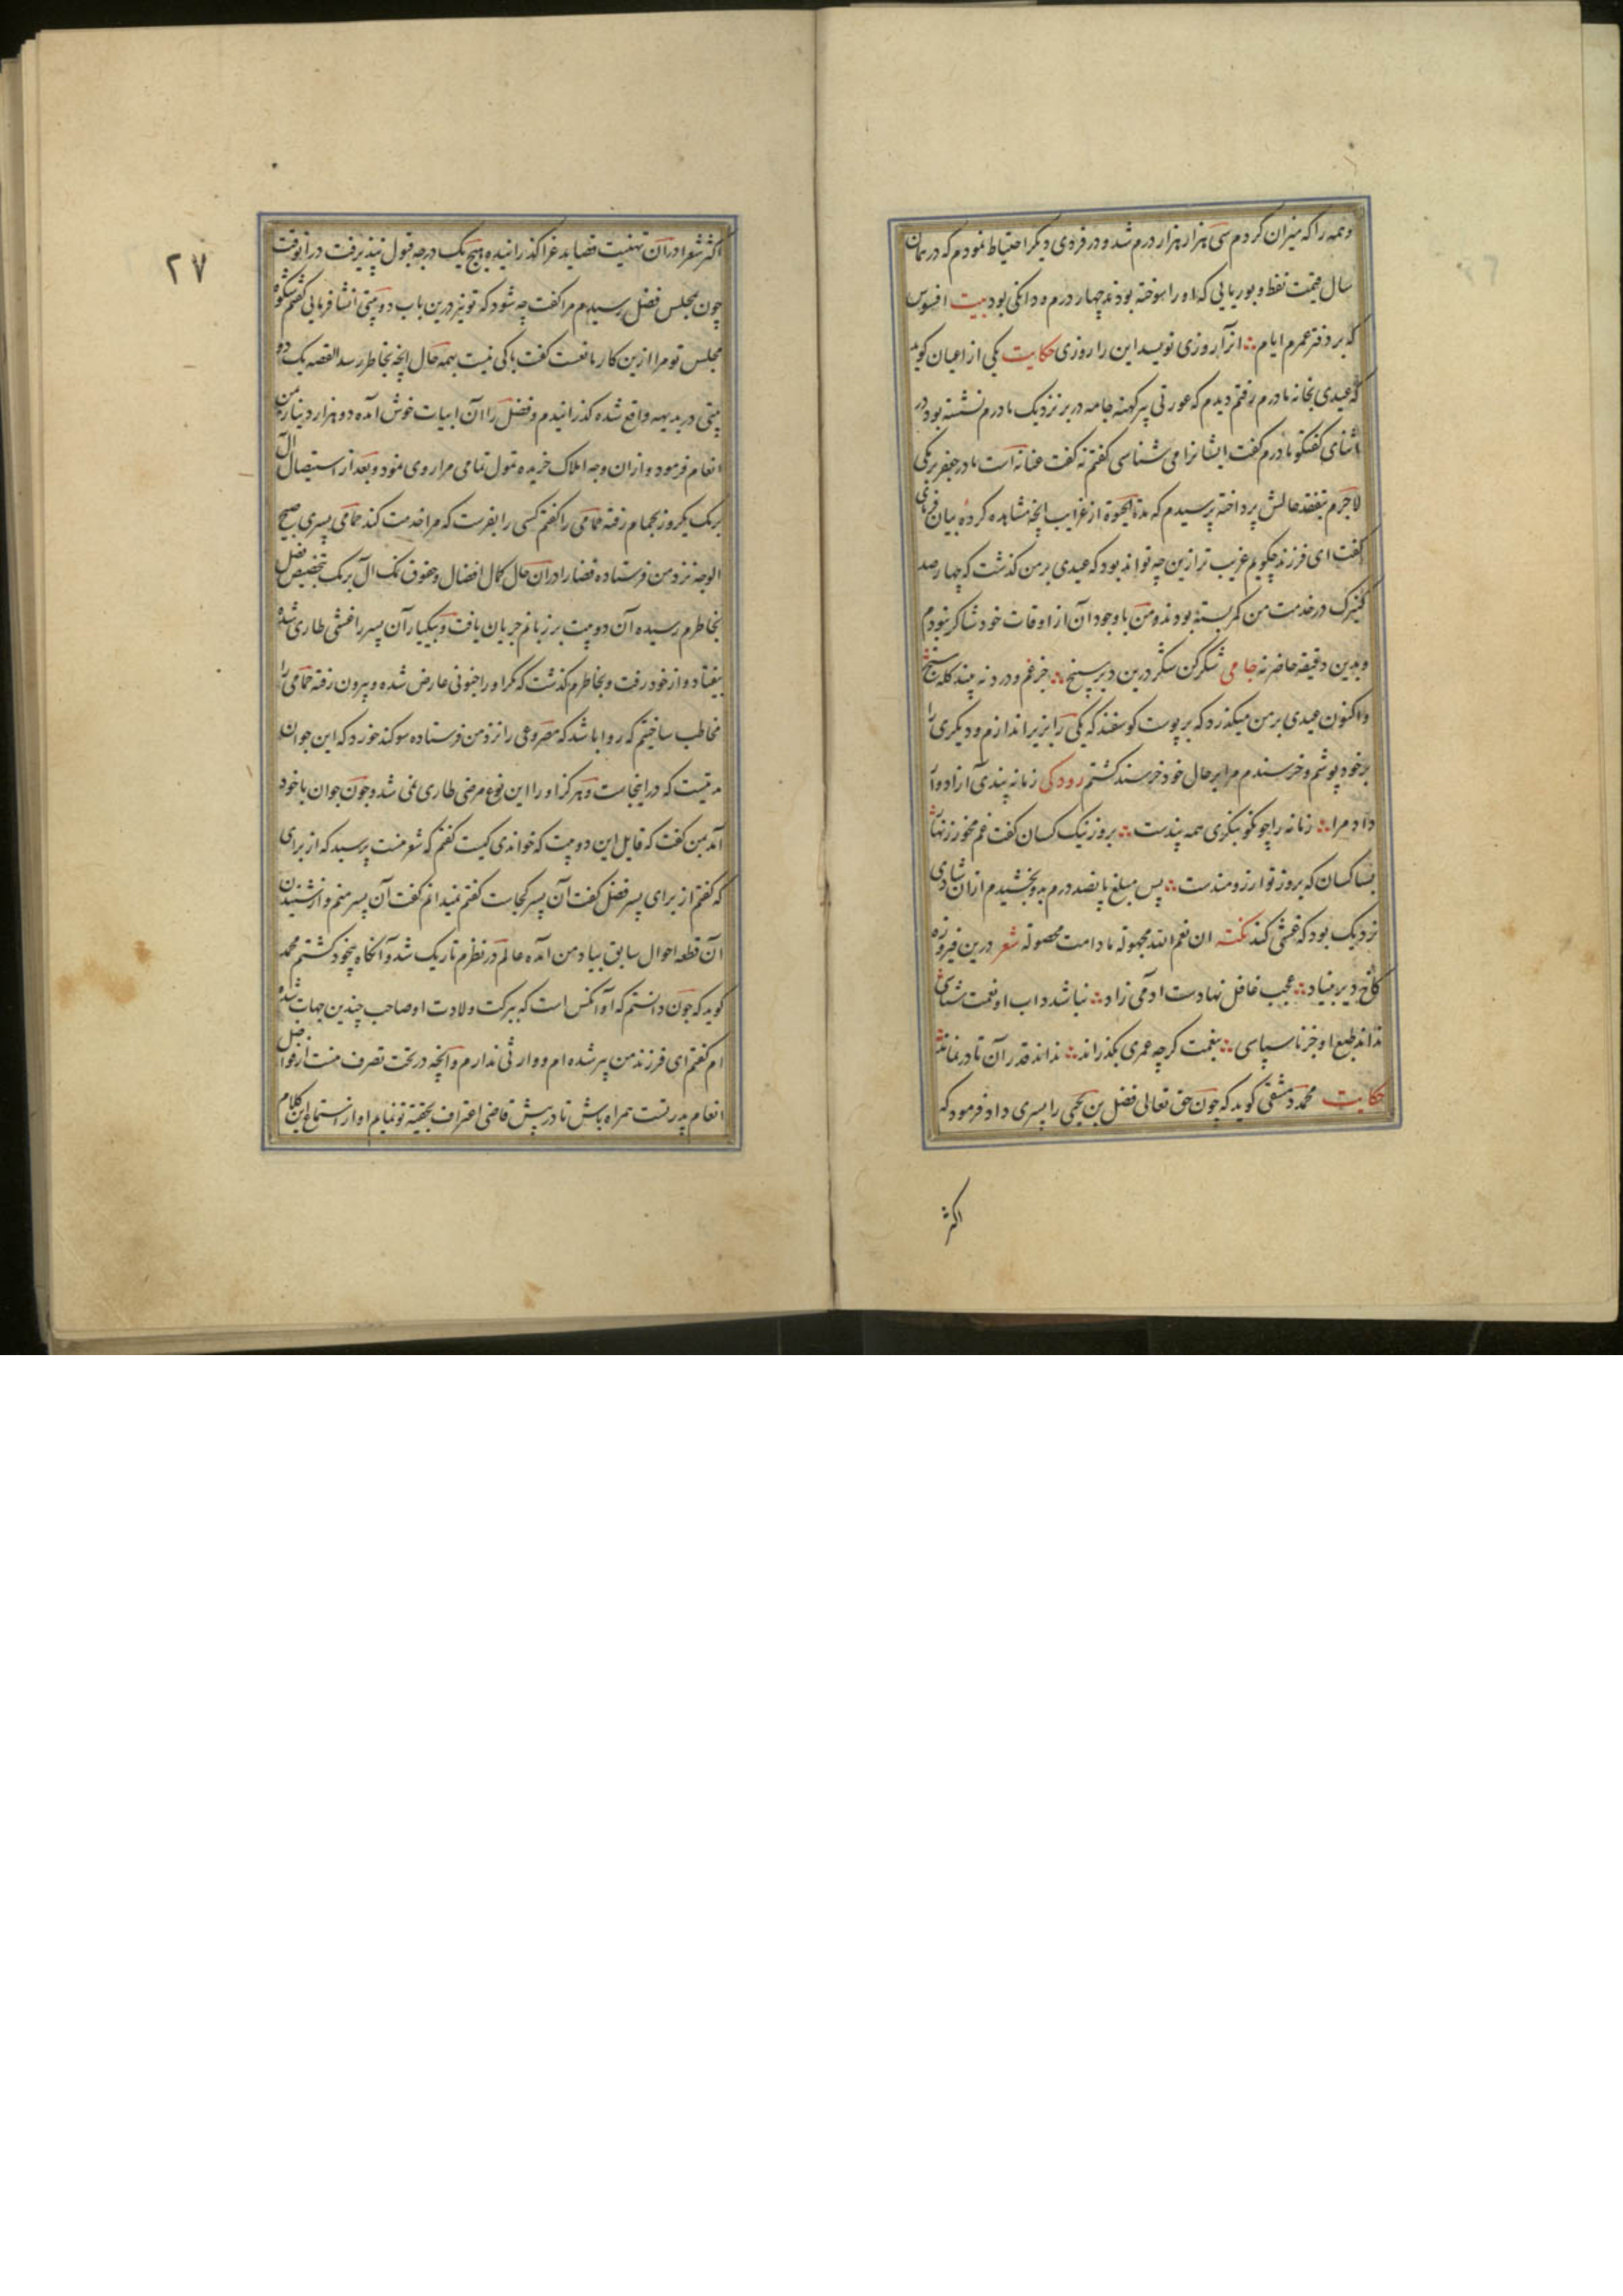 و همه را که میزان کردم سی هزار هزار درم شد و در فردی دیگر احتیاط نمودم که در همان
سال قیمت نفط و بوریایی که او را سوخته بودند چهار درم و دانکی بود بیت افسوس
که بر دفتر عمرم ایام آنرا روزی نویسد این را روزی حکایت یکی از اعیان کوید
که عیدی بخانه مادرم رفتم دیدم که عورتی پیر کهنه جامه در بر نزدیک مادرم نشسته بود در
اثنای کفتکو مادرم کفت ایشانرا می شناسی کفتم نه کفت عتابه است مادر جعفر برمکی
لاجرم بتفقد حالش پرداخته پرسیدم که مدة الحیوة از غرایب آنچه مشاهده کرده بیان فرمای
کفت ای فرزند چکویم غریب تر ازین چه تواند بود که عیدی بر من کذشت که چهار صد
کنیزک در خدمت من کمر بسته بودند و من با وجود آن از اوقات خود شاکر نبودم
و بدین دقیقه حاضر نه جامی شکر کن شکر درین دیر سپنج جز غم و درد نه پسند کله سنج
و اکنون عیدی بر من میکذرد که بر پوست کوسفند که یکی را بزیر اندازم و دیکری را
بر خود پوشم و خرسندم مرا بر حال خود خرسند کشتم رودکی زمانه پندی آزاد وار
داد مرا زمانه را چو نکو بنکری همه پندست بروز نیک کسان کفت غم مخور زنهار
بسا کسان که بروز تو آرزومندست پس مبلغ پانصد درم بدو بخشیدم از آن شادی
نزدیک بود که غشی کند نکته ان نعم الله مجهوله مادامت محصوله شعر درین فیروزه
کاخ دیر بنیاد عجب غافل نهادست آدمی زاد نباشد داب او نعمت شناسی
نداند طبع او جز ناسپاسی بنعمت کرچه عمری بکذراند نداند قدر آن تا در نماند
حکایت محمد دمشقی کوید که چون حق تعالی فضل بن یحیی را پسری داد فرمود که
اکثر
۲۷
اکثر شعرا در آن تهنیت قصاید غرا کذرانیده هیچ یک درجه قبول نپذیرفت در آنوقت
چون بمجلس فضل رسیدم مرا کفت چه شود که تو نیز درین باب دو بیتی انشا فرمایی کفتم شکوه
مجلس تو مرا ازین کار مانعست کفت باکی نیست بهمه حال آنچه بخاطر رسد القصه یک دو
بیتی در بدیهه واقع شده کذرانیدم و فضل را آن ابیات خوش آمده دو هزار دینار بمن
انعام فرمود و از آن وجه املاک خریده تمول تمامی مرا روی نمود و بعد از استیصال آل
برمک یکروز بحمام رفته حمامی را کفتم کسی را بفرست که مرا خدمت کند حمامی پسری صبیح
الوجه نزد من فرستاده قضا را در آن حال کمال افضال و حقوق نمک آل برمک بتخصیص فضل
بخاطرم رسیده آن دو بیت بر زبانم جریان یافت و بیکبار آن پسر را غشی طاری شده
بیفتاد و از خود رفت و بخاطرم کذشت که مکر او را جنونی عارض شده و بیرون رفته حمامی را
مخاطب ساختم که روا باشد که مصروعی را نزد من فرستاده سوکند خورد که این جوان
مدتیست که در اینجاست و هرکز او را این نوع مرضی طاری نمی شد و چون جوان با خود
آمد بمن کفت که قایل این دو بیت که خواندی کیست کفتم که شعر منست پرسید که از برای
که کفتم از برای پسر فضل کفت آن پسر کجاست کفتم نمیدانم کفت آن پسر منم و از شنیدن
آن قطعه احوال سابق بیاد من آمده عالم در نظرم تاریک شد و آنکاه بیخود کشتم محمد
کوید که چون دانستم که او آنکس است که ببرکت ولادت او صاحب چندین جهات شده
ام کفتم ای فرزند من پیر شده ام و وارثی ندارم و آنچه در تحت تصرف منست از فواضل
انعام پدر تست همراه باش تا در پیش قاضی اعتراف بحقیه تو نمایم او از استماع این کلام